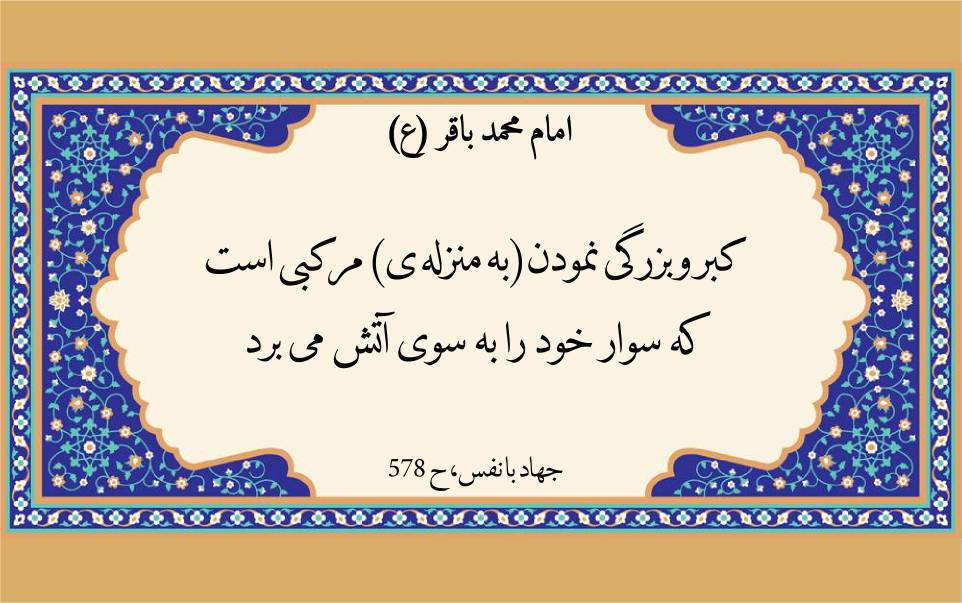 امام محمد باقر (ع)
کبر و بزرگی نمودن (به منزله ی) مرکبی است
که سوار خود را به سوی آتش می برد
جهاد با نفس، ح 578